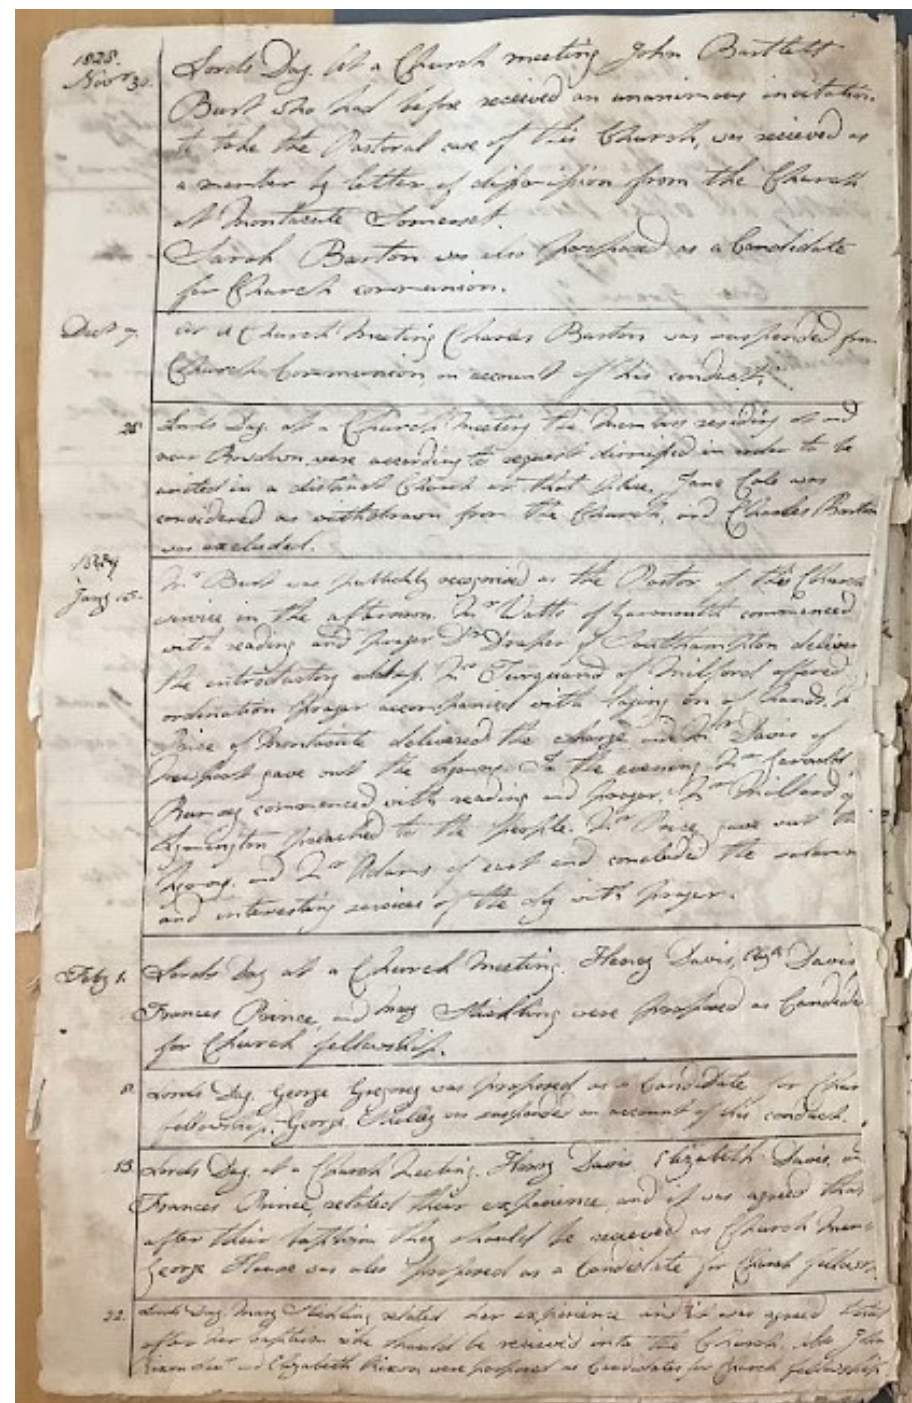 1828.
Novr 30.
Lords Day. At a Church meeting John Bartlett
Burt who had before received an unanimous invitation
to take the Pastoral care of this Church, was recieved as
a member by letter of dismission from the Church
at Montacute Somerset.
Sarah Barton was also proposed as a Candidate
for Church communion.
Decr 7.
At a Church Meeting Charles Barton was suspended from
Church Communion, on account of his conduct.
28
Lords Day. at a Church Meeting the members residing at and
near were according to request dismissed in order to be
united in a distinct Church at that place. Jane Cole was
considered as withdrawn from the Church, and Charles Barton
was excluded.
1829
Jany
Mr Burt was publickly recognised as the Pastor of this Church
service in the afternoon. Mr Watts of Yarmouth commenced
with reading and prayer Dr Draper of Southampton deliver
the introductory address. Mr Turquand of Milford offered
ordination prayer accompanied with laying on of hands.
Price of Montacute delivered the charge, and Mr Davis of
Newport gave out the hymns. In the evening Mr
Rumsey commenced with reading and prayer. Mr Millard of
Lymington preached to the people. Mr Price gave out the
hymns. and Mr Adams of east end concluded the solemn
and interesting services of the day with prayer.
Feby 1.
Lords Day at a Church Meeting. Henry Davis, Elizth Davis,
Frances Prince, and Mary Stickling were proposed as Candida
for Church fellowship.
8.
Lords Day. George Gregory was proposed as a Candidate for Chur
fellowship. George was suspended on account of his conduct.
15.
Lords Day. at a Church Meeting. Henry Davis, Elizabeth Davis, an
Frances Prince, related their experience, and it was agreed that
after their baptism they should be recieved as Church Mem
George House was also proposed as a Candidate for Church fellows
22.
Lords Day. Mary Stickling related her experience and it was agreed that
after her baptism she should be recieved into the Church. also John
and Elizabeth Rixon were proposed as Candidates for Church fellowship.